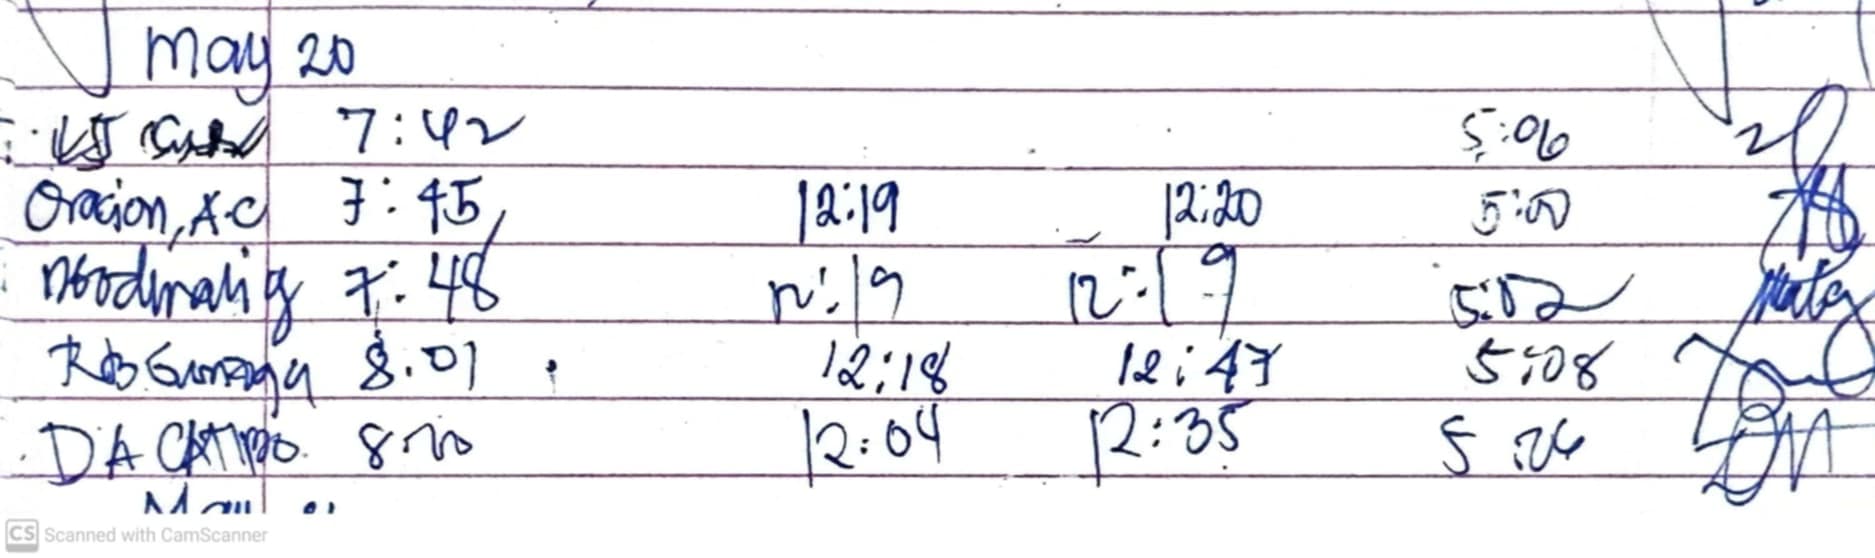 May 20
7:42 5:06
Oracion, A.C 7:45 12:19 12:20 5:00
7:48 12:19 12:19 5:02
8:01 12:18 12:47 5:08
DA 8:00 12:04 12:35 5:26
CS Scanned with CamScanner